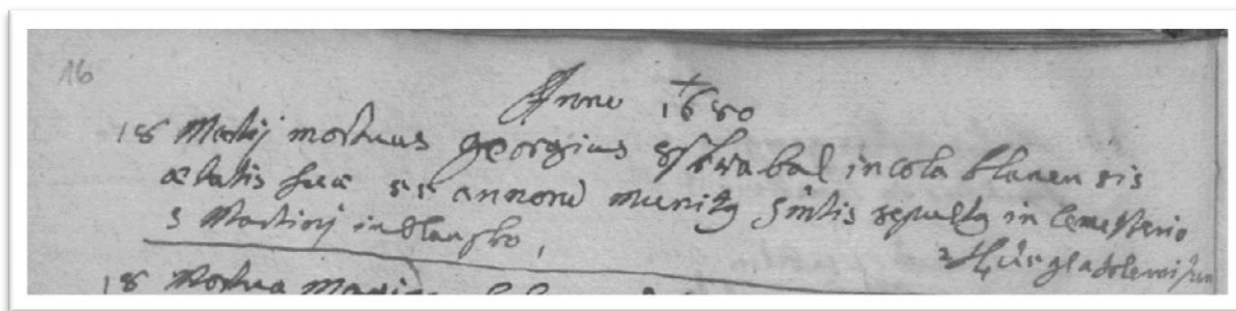 16
Anno 1680
18 Martij mortuus georgius Skrabal incola blanensis
ætatis suæ 55 annorū munitq sepultq in Cemeterio
S Martini in blansko,
18 Mortua